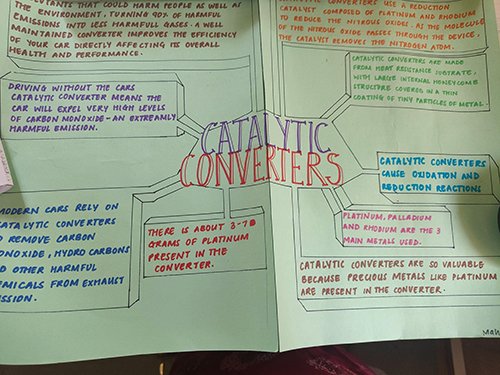 UTANTS THAT COULD HARM PEOPLE AS WELL AS
THE ENVIRONMENT, TURNING 90% OF HARMFUL
EMISSIONS INTO LESS HARMFUL GASES. A WELL
MAINTAINED CONVERTER IMPROVES THE EFFICIENCY
OF YOUR CAR DIRECTLY AFFECTING ITS OVERALL
HEALTH AND PERFORMANCE.
CONVERTERS USE A REDUCTION
CATALYST COMPOSED OF PLATINUM AND RHODIUM
TO REDUCE THE NITROUS OXIDE. AS THE MOLECULE
OF THE NITROUS OXIDE PASSES THROUGH THE DEVICE,
THE CATALYST REMOVES THE NITROGEN ATOM.
CATALYTIC CONVERTERS ARE MADE
FROM HEAT RESISTANCE SUBSTRATE,
WITH LARGE INTERNAL HONEYCOMB
STRUCTURE COVERED IN A THIN
COATING OF TINY PARTICLES OF METAL.
DRIVING WITHOUT THE CARS
CATALYTIC CONVERTER MEANS THE
CAR WILL EXPEL VERY HIGH LEVELS
OF CARBON MONOXIDE-AN EXTREAMLY
HARMFUL EMISSION.
CATALYTIC
CONVERTERS
CATALYTIC CONVERTERS
CAUSE OXIDATION AND
REDUCTION REACTIONS
MODERN CARS RELY ON
CATALYTIC CONVERTERS
O REMOVE CARBON
ONOXIDE, HYDRO CARBONS
ND OTHER HARMFUL
EMICALS FROM EXHAUST
ISSION.
THERE IS ABOUT 3-7g
GRAMS OF PLATINUM
PRESENT IN THE
CONVERTER.
PLATINUM, PALLADIUM
AND RHODIUM ARE THE 3
MAIN METALS USED.
CATALYTIC CONVERTERS ARE SO VALUABLE
BECAUSE PRECIOUS METALS LIKE PLATINUM
ARE PRESENT IN THE CONVERTER.